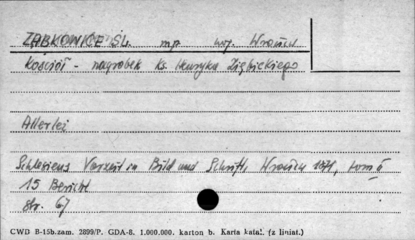 ZĄBKOWICE ŚL. mp. woj. Wrocław
Kościół - nagrobek ks. Henryka Ziębickiego
Allerlei
Schlesiens Vorzeit in Bild und Schrift, Wrocław 1871, tom II
15 Bericht
Str. 67
CWD B-15b. zam. 2899/P. GDA-8. 1.000.000. karton b. Karta katal. (z liniat.)